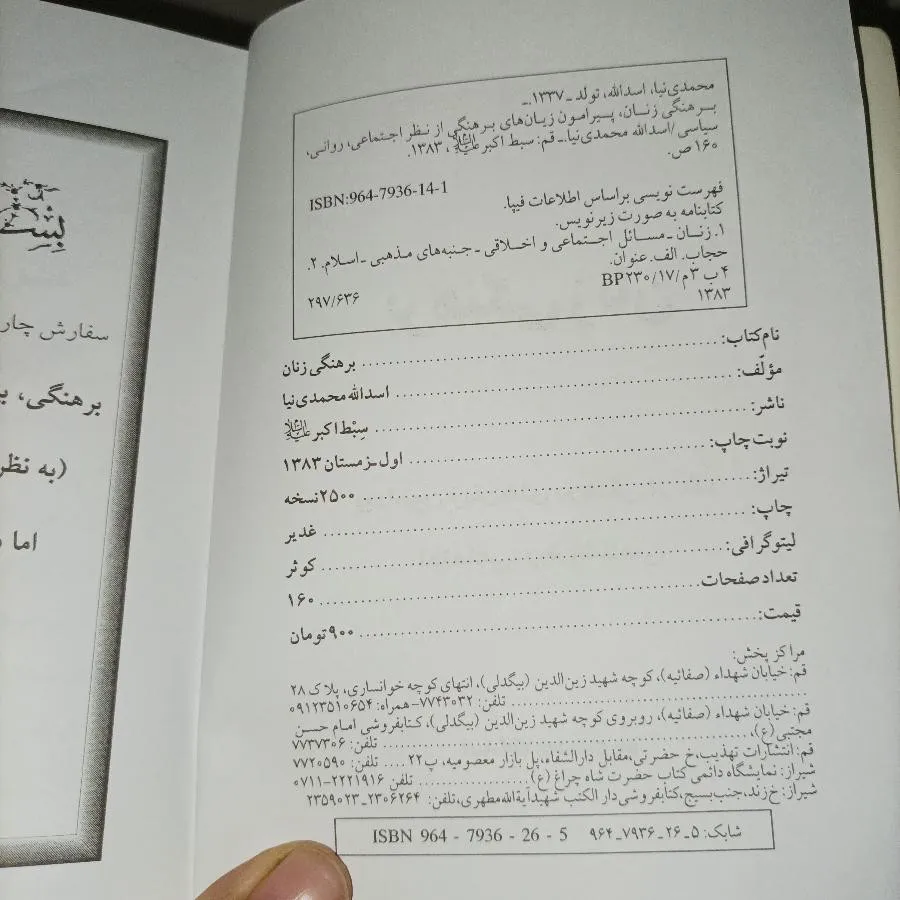 محمدی‌نیا، اسدالله، تولد ـ ۱۳۳۷.ـ
برهنگی زنان، پیرامون زیان‌های برهنگی از نظر اجتماعی، روانی،
سیاسی/اسدالله محمدی‌نیا.ـ قم: سبط اکبر علیه‌السلام، ۱۳۸۳.
۱۶۰ ص.
ISBN:964-7936-14-1
فهرست نویسی براساس اطلاعات فیپا.
کتابنامه به صورت زیرنویس.
۱. زنان ـ مسائل اجتماعی و اخلاقی ـ جنبه‌های مذهبی ـ اسلام. ۲.
حجاب. الف. عنوان.
۴ ب ۳ م / ۱۷ / ۲۳۰ BP
۲۹۷/۶۳۶ ۱۳۸۳
نام کتاب: برهنگی زنان
مؤلّف: اسدالله محمدی‌نیا
ناشر: سِبْط اکبر علیه‌السلام
نوبت چاپ: اول ـ زمستان ۱۳۸۳
تیراژ: ۲۵۰۰ نسخه
چاپ: غدیر
لیتوگرافی: کوثر
تعداد صفحات ۱۶۰
قیمت: ۹۰۰ تومان
مراکز پخش:
قم: خیابان شهداء (صفائیه)، کوچه شهید زین‌الدین (بیگدلی)، انتهای کوچه خوانساری، پلاک ۲۸
تلفن: ۷۷۴۳۰۳۲-همراه: ۰۹۱۲۳۵۱۰۶۵۴
قم: خیابان شهداء (صفائیه)، روبروی کوچه شهید زین‌الدین (بیگدلی)، کتابفروشی امام حسن
مجتبی(ع)، تلفن: ۷۷۳۷۳۰۶
قم: انتشارات تهذیب، خ حضرتی، مقابل دارالشفاء، پل بازار معصومیه، پ۲۲ .... تلفن: ۷۷۲۰۵۹۰
شیراز: نمایشگاه دائمی کتاب حضرت شاه چراغ (ع) تلفن ۲۲۲۱۹۱۶-۰۷۱۱
شیراز: خ زند، جنب بسیج، کتابفروشی دار الکتب شهید آیة‌الله مطهری، تلفن: ۲۳۰۶۲۶۴ ـ ۲۳۵۹۰۲۳
شابک: ۵ ـ ۲۶ ـ ۷۹۳۶ ـ ۹۶۴ ISBN 964 - 7936 - 26 - 5
سفارش چا
برهنگی،
(به نظر
اما